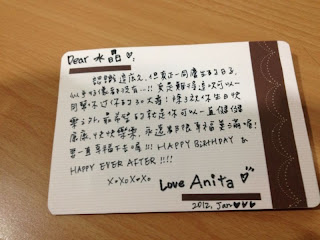 Dear 水晶♡,
認識這麼久,但真正一同慶生的日子,
似乎好像都沒有...!! 真是難得這次可以一
同幫你過你的30大壽! 除了祝你生日快
樂之外,最希望的就是你可以一直健健
康康,快快樂樂,永遠都很幸福美滿唷!
要一直幸福下去唷!!! HAPPY BIRTHDAY &
HAPPY EVER AFTER !!!!
XoXoXoXo
Love Anita ♡
2012. Jan ♥♥♥